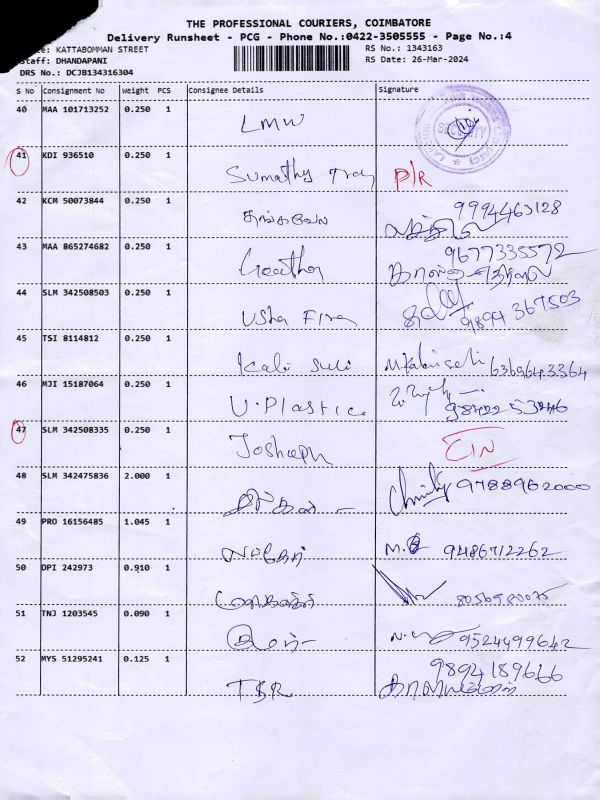 THE PROFESSIONAL COURIERS, COIMBATORE
Delivery Runsheet - PCG - Phone No.:0422-3505555 - Page No.:4
KATTABOMMAN STREET RS No.: 1343163
Staff: DHANDAPANI RS Date: 26-Mar-2024
DRS No.: DCJB134316304
S No Consignment No Weight PCS Consignee Details Signature
40 MAA 101713252 0.250 1 LMW
SECURITY
41 KDI 936510 0.250 1 Sumathy P/R
42 KCM 50073844 0.250 1 தங்கவேல் 9994463128
43 MAA 865274682 0.250 1 Geetha 9677335572
44 SLM 342508503 0.250 1 Usha Fire 9894367503
45 TSI 8114812 0.250 1 Kali 6369643364
46 MJI 15187064 0.250 1 U.Plastic 9842253246
47 SLM 342508335 0.250 1 Josheph CIN
48 SLM 342475836 2.000 1 9788962000
49 PRO 16156485 1.045 1 9486712262
50 DPI 242973 0.910 1
51 TNJ 1203545 0.090 1 9524499642
52 MYS 51295241 0.125 1 TSR 9894189666